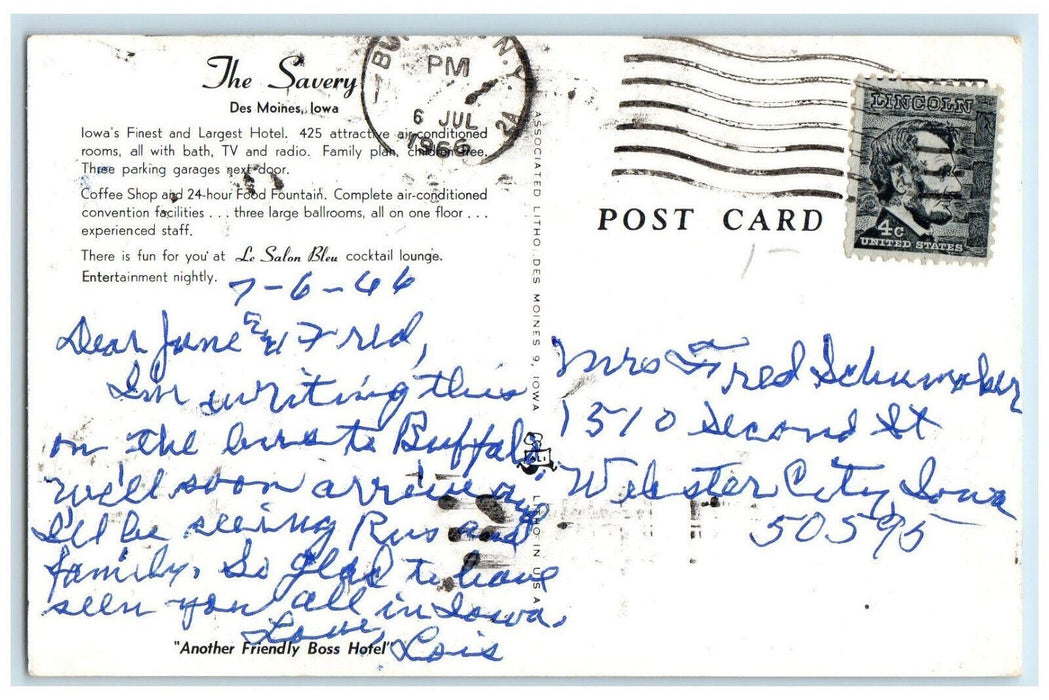 The Savery
Des Moines, Iowa
Iowa's Finest and Largest Hotel. 425 attractive air-conditioned
rooms, all with bath, TV and radio. Family plan, children free.
Three parking garages next door.
Coffee Shop and 24-hour Food Fountain. Complete air-conditioned
convention facilities . . . three large ballrooms, all on one floor . . .
experienced staff.
There is fun for you at Le Salon Bleu cocktail lounge.
Entertainment nightly.
7-6-66
Dear June & Fred,
I'm writing this
on the bus to Buffalo.
We'll soon arrive and
I'll be seeing Rus and
family. So glad to have
seen you all in Iowa.
Love,
Lois
"Another Friendly Boss Hotel"
ASSOCIATED LITHO. DES MOINES 9, IOWA
LITHO IN USA
N.Y.
PM
6 JUL
1966
2A
POST CARD
LINCOLN
4c
UNITED STATES
Mrs Fred Schumaker
1510 Second St
Webster City, Iowa
50595